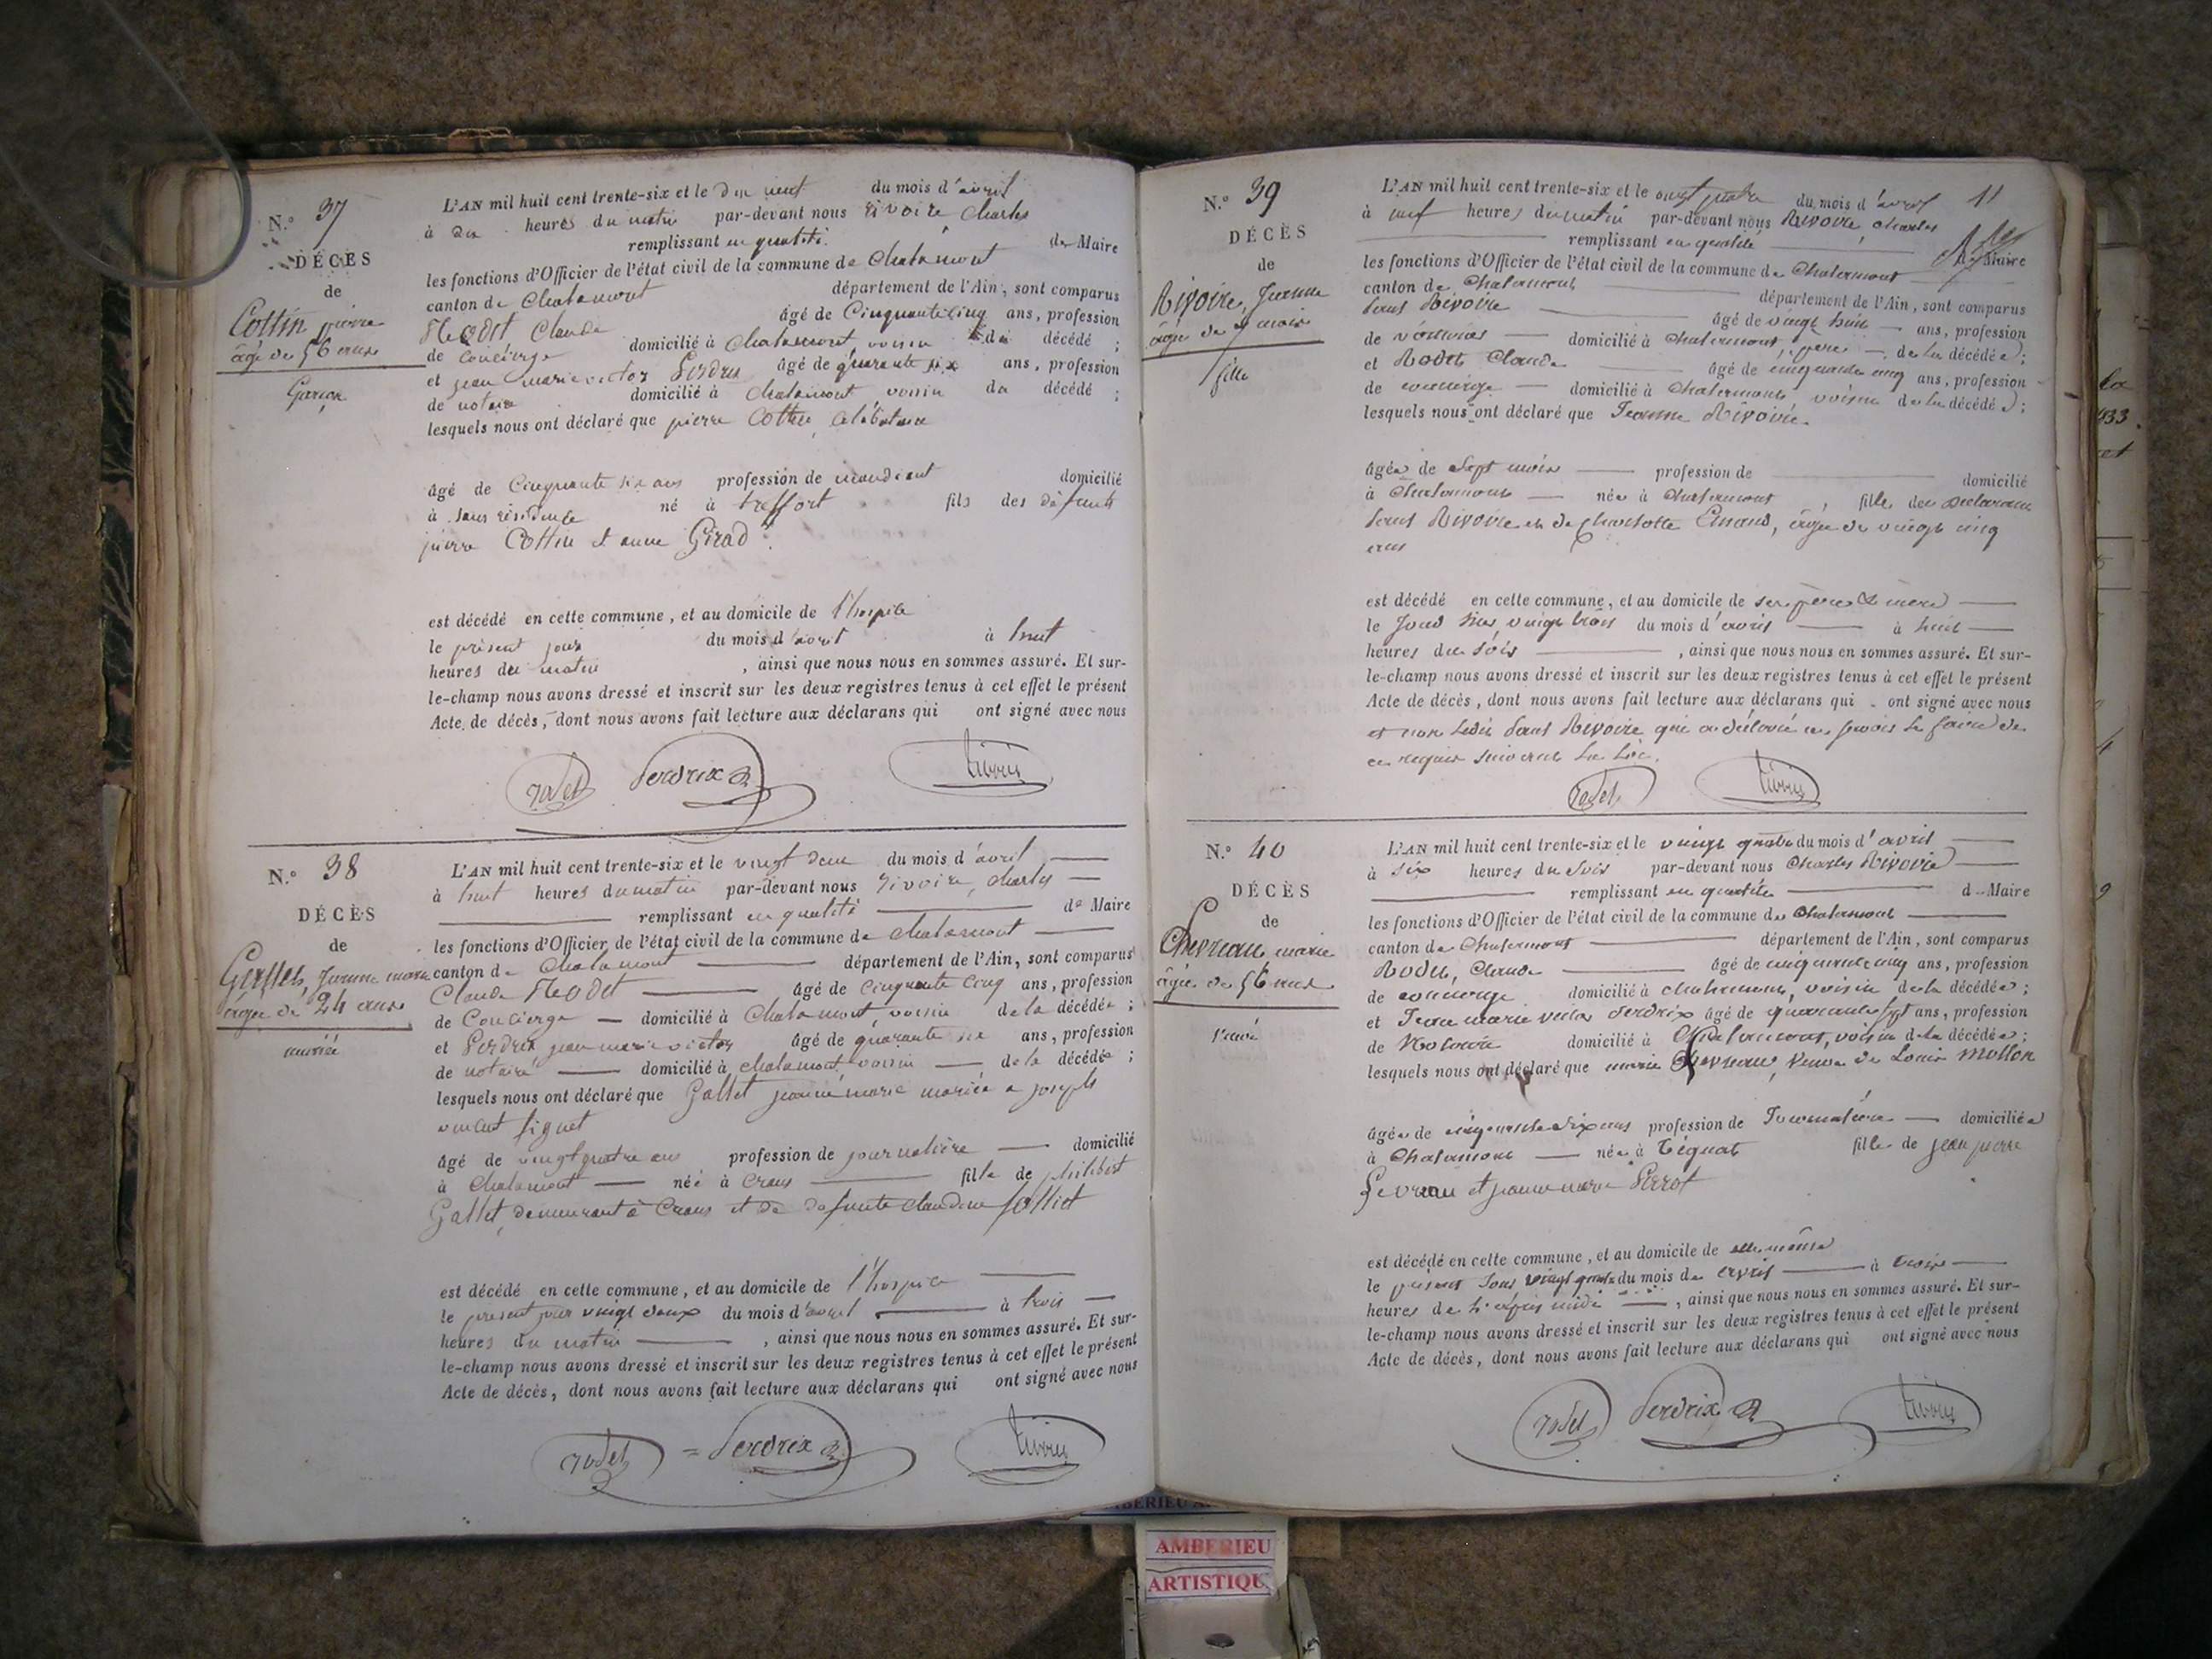 N.° 37
DÉCÈS
de
Cottin pierre
âgé de 56 ans
Garçon
L'AN mil huit cent trente-six et le dix neuf du mois d'avril
à dix heures du matin par-devant nous rivoire Charles
remplissant en qualité de Maire
les fonctions d'Officier de l'état civil de la commune de Chalamont
canton de Chalamont département de l'Ain, sont comparus
Rodet Claude âgé de Cinquante cinq ans, profession
de Concierge domicilié à Chalamont, voisin du décédé ;
et jean marie victor Perdrix âgé de quarante six ans, profession
de notaire domicilié à Chalamont, voisin du décédé ;
lesquels nous ont déclaré que pierre Cottin, célibataire
âgé de Cinquante six ans profession de mandiant domicilié
à sans résidence né à treffort fils des défunts
pierre Cottin et anne Girad
est décédé en cette commune, et au domicile de l'hospice
le présent jour du mois d'avril à huit
heures du matin , ainsi que nous nous en sommes assuré. Et sur-
le-champ nous avons dressé et inscrit sur les deux registres tenus à cet effet le présent
Acte de décès, dont nous avons fait lecture aux déclarans qui ont signé avec nous
rodet Perdrix rivoire
N.° 38
DÉCÈS
de
Jeanne marie
âgée de 24 ans
mariée
L'AN mil huit cent trente-six et le vingt deux du mois d'avril
à huit heures du matin par-devant nous rivoire, charles
remplissant en qualité de Maire
les fonctions d'Officier de l'état civil de la commune de Chalamont
canton de Chalamont département de l'Ain, sont comparus
Claude Rodet âgé de cinquante cinq ans, profession
de Concierge domicilié à Chalamont, voisin de la décédée ;
et Perdrix jean marie victor âgé de quarante six ans, profession
de notaire domicilié à chalamont, voisin de la décédée ;
lesquels nous ont déclaré que Gallet jeanne marie mariée a joseph
vincent figuet
âgé de vingt quatre ans profession de journalière domicilié
à Chalamont née à Crans fille de philibert
Gallet, demeurant à Crans et de défunte claudine folliet
est décédé en cette commune, et au domicile de l'hospice
le présent jour vingt deux du mois d'avril à trois
heures du matin , ainsi que nous nous en sommes assuré. Et sur-
le-champ nous avons dressé et inscrit sur les deux registres tenus à cet effet le présent
Acte de décès, dont nous avons fait lecture aux déclarans qui ont signé avec nous
rodet = Perdrix rivoire
11
N.° 39
DÉCÈS
de
Rivoire, Jeanne
âgée de 7 mois
fille
L'AN mil huit cent trente-six et le vingt quatre du mois d'avril
à neuf heures du matin par-devant nous Rivoire, charles
remplissant en qualité de Maire
les fonctions d'Officier de l'état civil de la commune de Chalamont
canton de Chalamont département de l'Ain, sont comparus
Rivoire âgé de vingt huit ans, profession
de domicilié à Chalamont, père de la décédée ;
et Rodet Claude âgé de cinquante cinq ans, profession
de concierge domicilié à Chalamont, voisin de la décédée ;
lesquels nous ont déclaré que Jeanne Rivoire
âgée de sept mois profession de domicilié
à Chalamont née à Chalamont, fille du déclarant
Rivoire et de charlotte âgée de vingt cinq
ans
est décédé en cette commune, et au domicile de ses père & mère
le jour hier vingt trois du mois d'avril à huit
heures du soir , ainsi que nous nous en sommes assuré. Et sur-
le-champ nous avons dressé et inscrit sur les deux registres tenus à cet effet le présent
Acte de décès, dont nous avons fait lecture aux déclarans qui ont signé avec nous
et non ledit Rivoire qui a déclaré ne savoir le faire de
ce requis suivant la loi.
rodet rivoire
N.° 40
DÉCÈS
de
Chevreau marie
âgée de 56 ans
veuve
L'AN mil huit cent trente-six et le vingt quatre du mois d'avril
à six heures du soir par-devant nous Charles Rivoire
remplissant en qualité d Maire
les fonctions d'Officier de l'état civil de la commune de Chalamont
canton de Chalamont département de l'Ain, sont comparus
Rodet, Claude âgé de cinquante cinq ans, profession
de concierge domicilié à chalamont, voisin de la décédée ;
et Jean marie victor Perdrix âgé de quarante sept ans, profession
de Notaire domicilié à Chalamont, voisin de la décédée ;
lesquels nous ont déclaré que marie Chevreau, veuve de Louis Mollon
âgée de cinquante six ans profession de Journalière domiciliée
à Chalamont née à fille de jean pierre
Gevreau et jeanne marie Perrot
est décédé en cette commune, et au domicile de elle même
le présent jour vingt quatre du mois de avril à trois
heures de l'après midi , ainsi que nous nous en sommes assuré. Et sur-
le-champ nous avons dressé et inscrit sur les deux registres tenus à cet effet le présent
Acte de décès, dont nous avons fait lecture aux déclarans qui ont signé avec nous
rodet Perdrix rivoire
AMBERIEU
ARTISTIQU